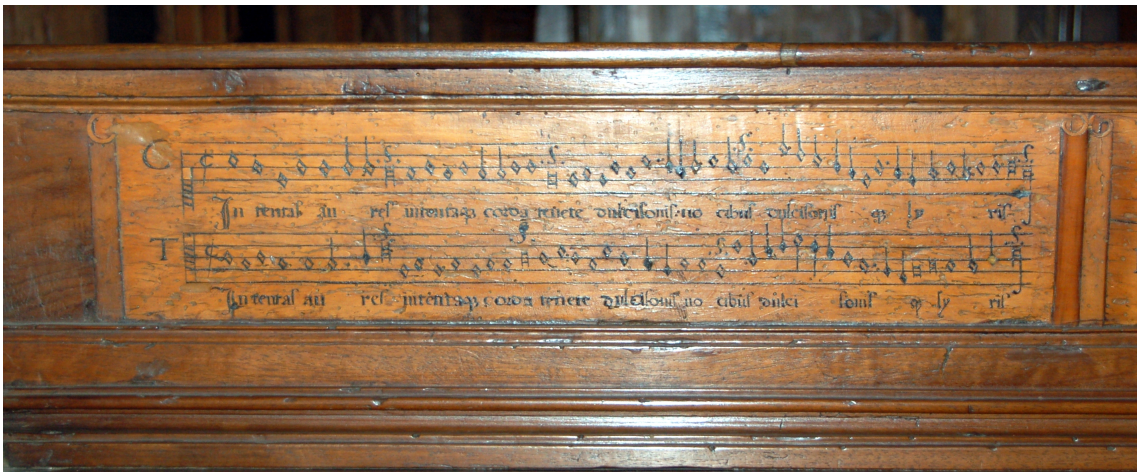 C
In tentas au res intentaqȝ corda tenete dulcisonis no cibus dulcisonis
T
In tentas au res intentaqȝ corda tenete dulcisonis no cibus dulci sonis